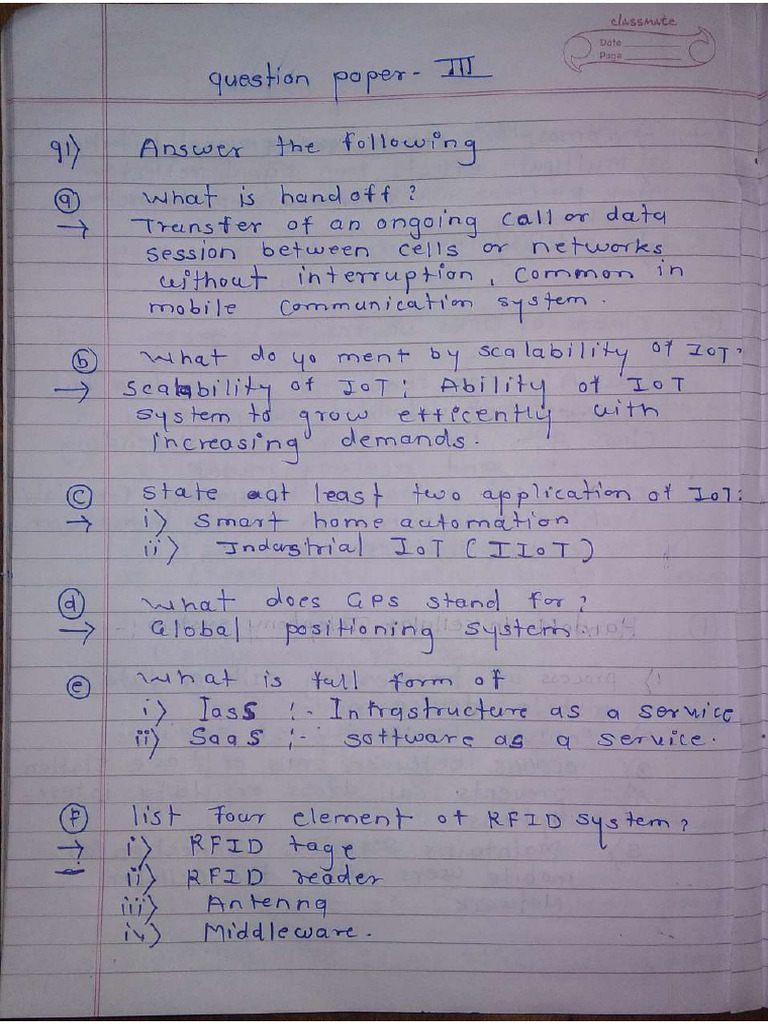 classmate
Date
Page
question paper - III
q1) Answer the following
(a) what is handoff?
→ Transfer of an ongoing call or data
session between cells or networks
without interruption, common in
mobile communication system.
(b) what do yo ment by scalability of IoT?
→ Scalability of IoT: Ability of IoT
system to grow efficently with
increasing demands.
(c) state at least two application of IoT:
→ i) Smart home automation
ii) Industrial IoT (IIoT)
(d) what does GPS stand for?
→ Global positioning system.
(e) what is full form of
i) IasS :- Infrastructure as a service
ii) SaaS :- software as a service.
(f) list four element of RFID system?
→ i) RFID tage
ii) RFID reader
iii) Antenna
iv) Middleware.